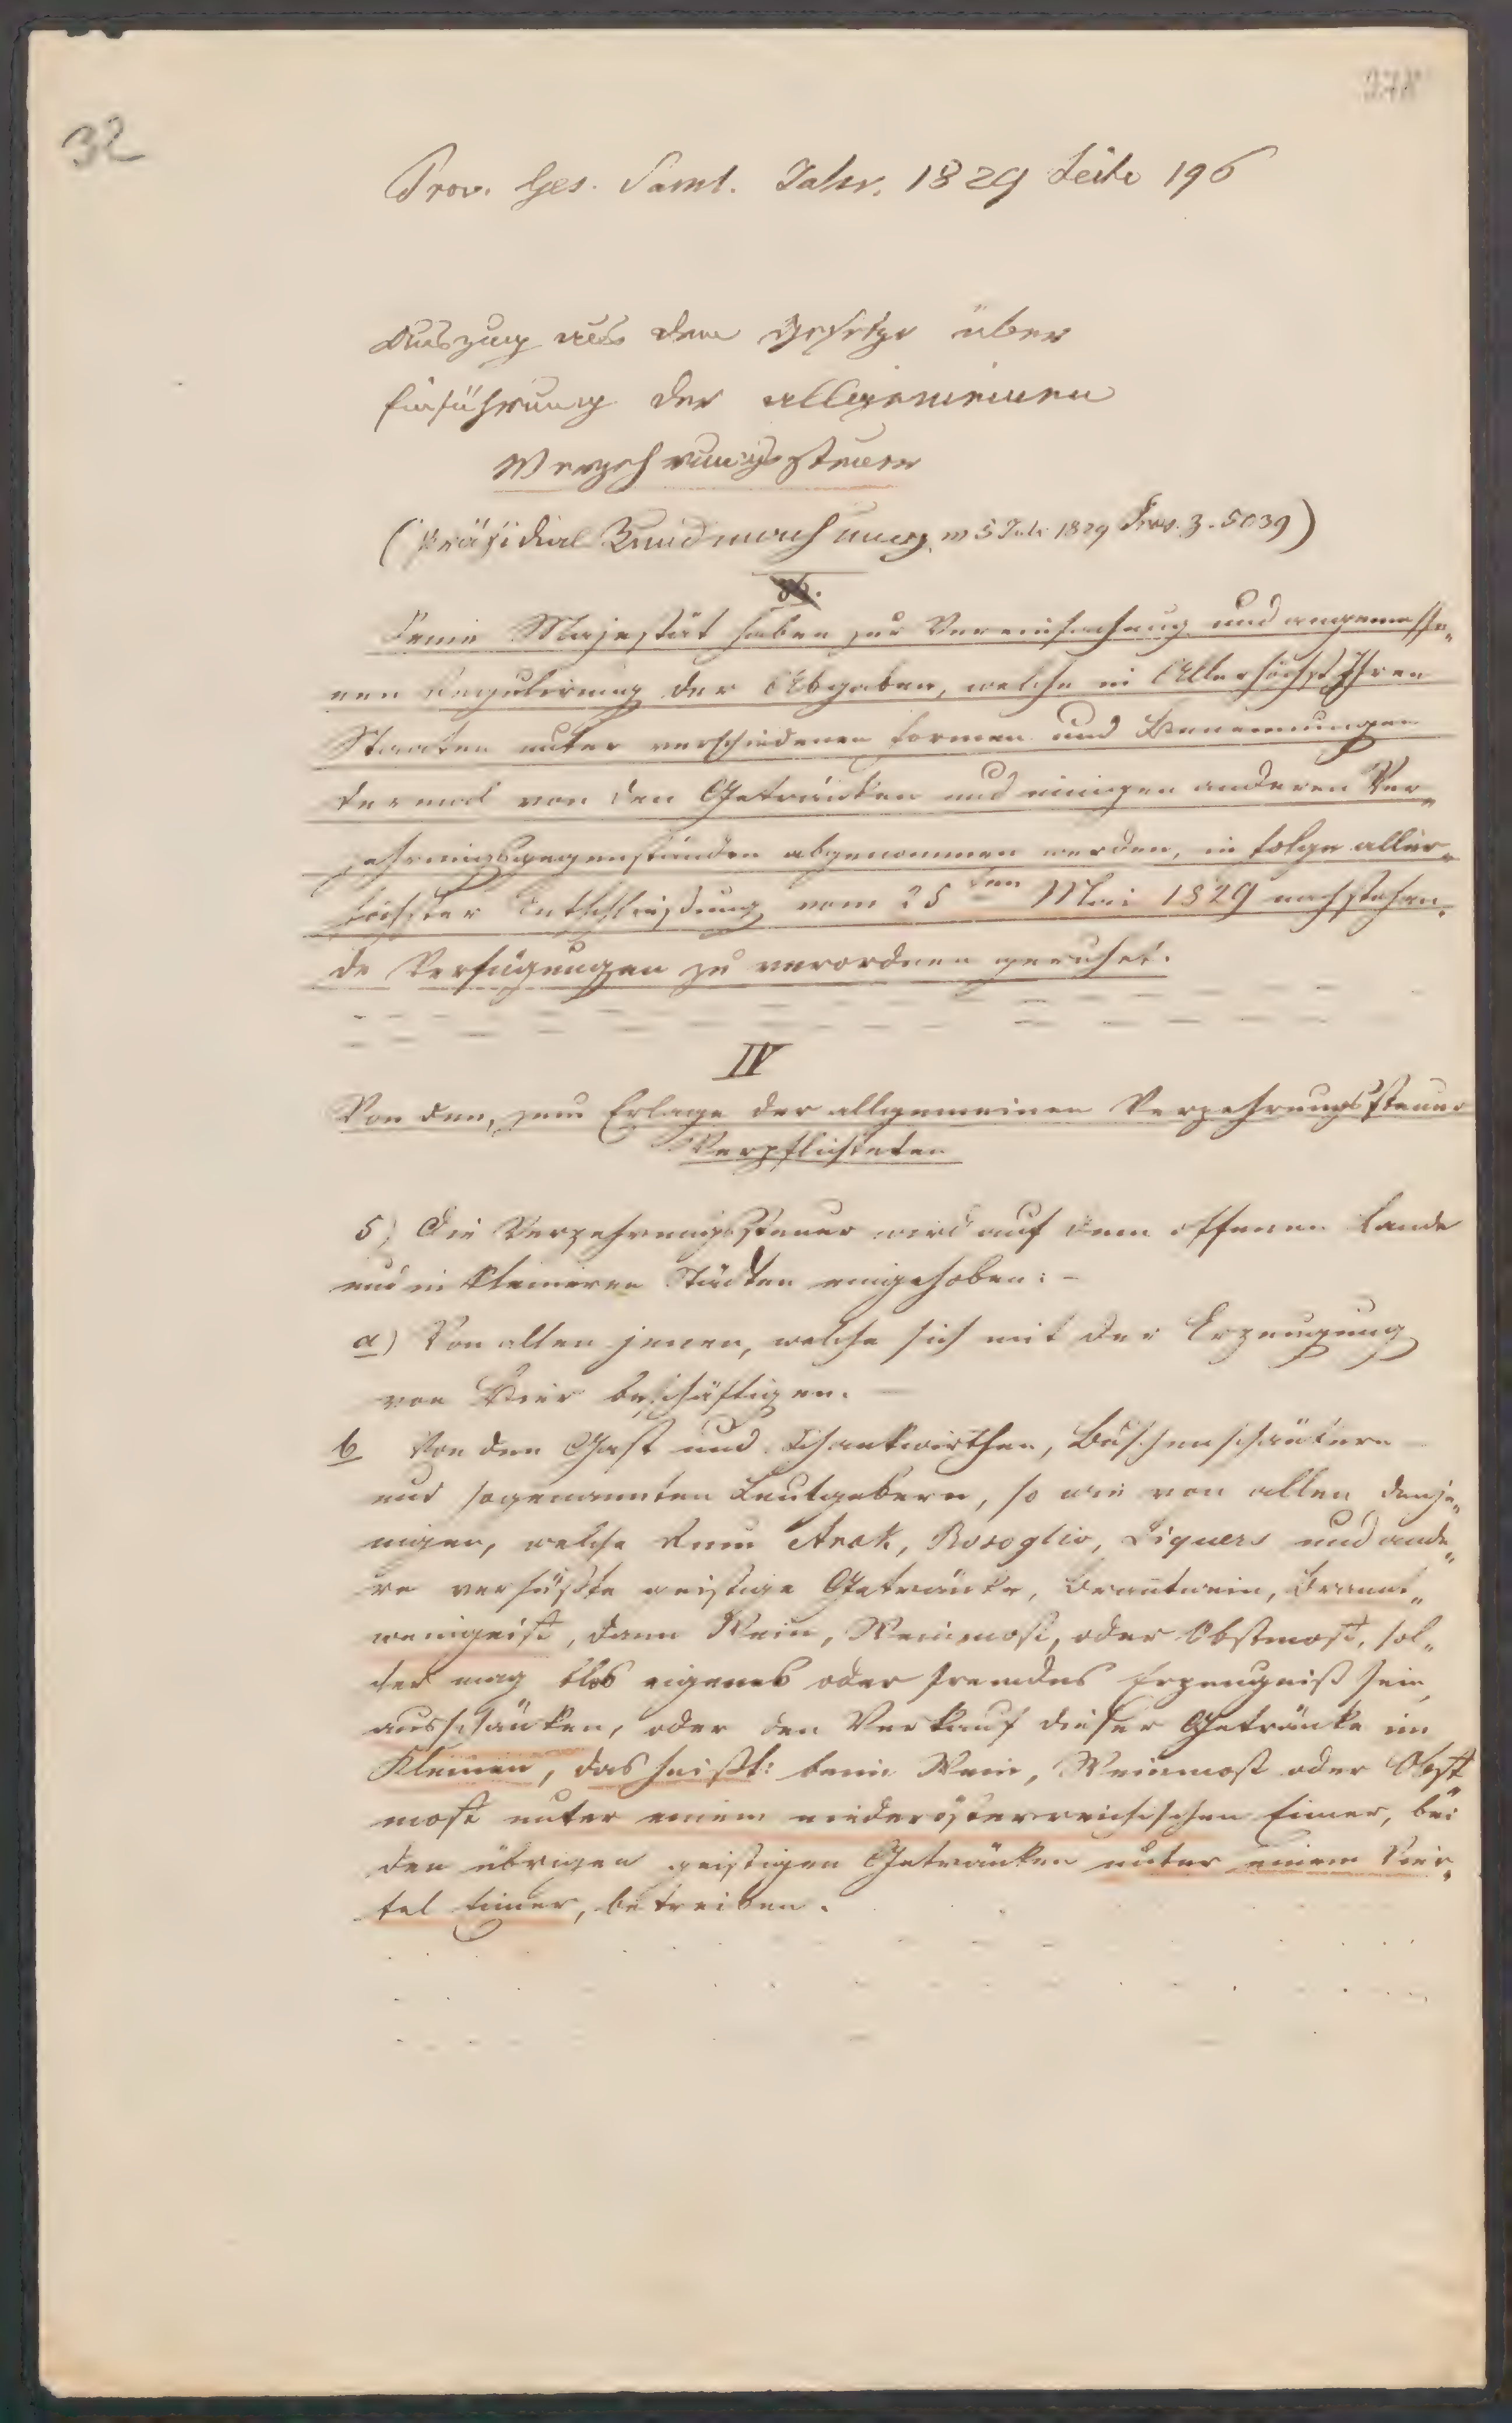 32
Prov. Ges. Saml. Jahr. 1829 Seite 196
Auszug aus dem Gesetze über
Einführung der allgemeinen
Verzehrungssteuer
(Präsidial Kundmachung v 5 Juli 1829 Prov. Z. 5039)
Seine Majestät haben zur Vereinfachung und angemesse„
nen Regulirung der Abgaben, welche in Allerhöchst Ihren
Staaten unter verschiedenen Formen und Benennungen
dermal von den Getränken und einigen anderen Ver„
zehrungsgegenständen abgenommen werden, in Folge aller„
höchster Entschließung vom 25ten Mai 1829 nachstehen„
de Verfügungen zu verordnen geruhet.
IV
Von den, zum Erlage der allgemeinen Verzehrungssteuer
Verpflichteten
5) Die Verzehrungssteuer wird auf dem offenen Lande
und in kleineren Städten eingehoben: –
a) Von allen jenen, welche sich mit der Erzeugung
von Bier beschäftigen. –
b Von den Gast und Schankwirthen, Buschenschänkern
und sogenannten Leutgebern, so wie von allen denje„
nigen, welche Rum Arak, Rosoglio, Liquers und ande„
re versüßte geistige Getränke, Brantwein, Brannt„
weingeist, dann Wein, Weinmost, oder Obstmost, sol„
ches mag blos eigenes oder fremdes Erzeugniß sein,
ausschänken, oder den Verkauf dieser Getränke im
Kleinen, das heißt: beim Wein, Weinmost oder Obst„
most unter einem niederösterreichischen Eimer, bei
den übrigen geistigen Getränken unter einem Vier„
tel Eimer, betreiben.